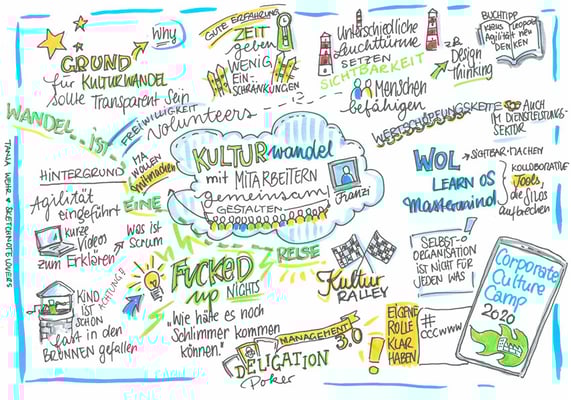 Why
GRUND
für KULTURWANDEL
sollte Transparent sein
GUTE ERFAHRUNG
ZEIT
geben
WENIG
EIN-
SCHRÄNKUNGEN
Unterschiedliche
Leuchttürme
SETZEN
SICHTBARKEIT
Menschen
befähigen
z.B.
Design
Thinking
BUCHTIPP
Klaus Leopold
Agilität neu
DENKEN
WANDEL IST
EINE
REISE
FREIWILLIGKEIT
Volunteers
MA
WOLLEN
mitmachen
KULTURwandel
mit MITARBEITERN
gemeinsam
GESTALTEN
Franzi
WERTSCHÖPFUNGSKETTE
AUCH
IM DIENSTLEISTUNGS-
SEKTOR
WOL
SICHTBAR MACHEN
LEARN OS
Mastermind
KOLLABORATIVE
Tools,
die SILOS
aufbrechen
TANJA WEHR ♥ SKETCHNOTELOVERS
HINTERGRUND
Agilität
eingeführt
kurze
Videos
zum Erklären
Was ist
Scrum
KIND
IST
SCHON
fast in den
BRUNNEN gefallen
ACHTUNG!!
FUCKED
up NIGHTS
"Wie hätte es noch
Schlimmer kommen
können."
Kultur
RALLEY
MANAGEMENT
3.0
DELIGATION
Poker
SELBST-
ORGANISATION
IST NICHT FÜR
JEDEN WAS!
EIGENE
ROLLE
KLAR
HABEN
#
cccwww
Corporate
Culture
Camp
2020